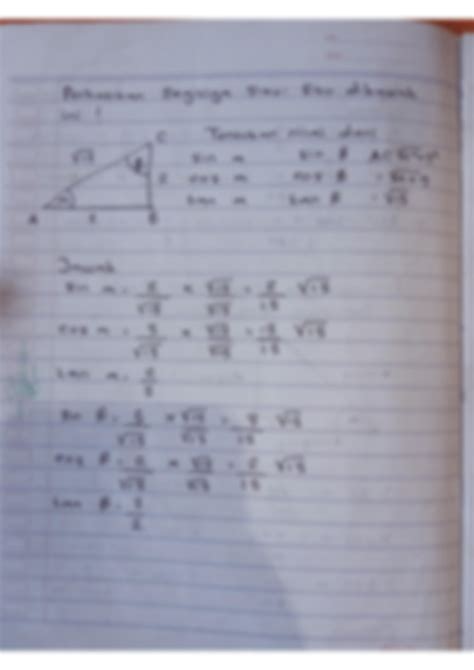 Perhatikan Segitiga Siku-Siku dibawah
ini !
Tentukan nilai dari
C
√13
A
B
sin α sin β
cos α cos β
tan α tan β = √13
Jawab
sin α = 2/√13 × √13/√13 = 2/13 √13
cos α = 3/√13 × √13/√13 = 3/13 √13
tan α = 2/3
sin β = 3/√13 × √13/√13 = 3/13 √13
cos β = 2/√13 × √13/√13 = 2/13 √13
tan β = 3/2